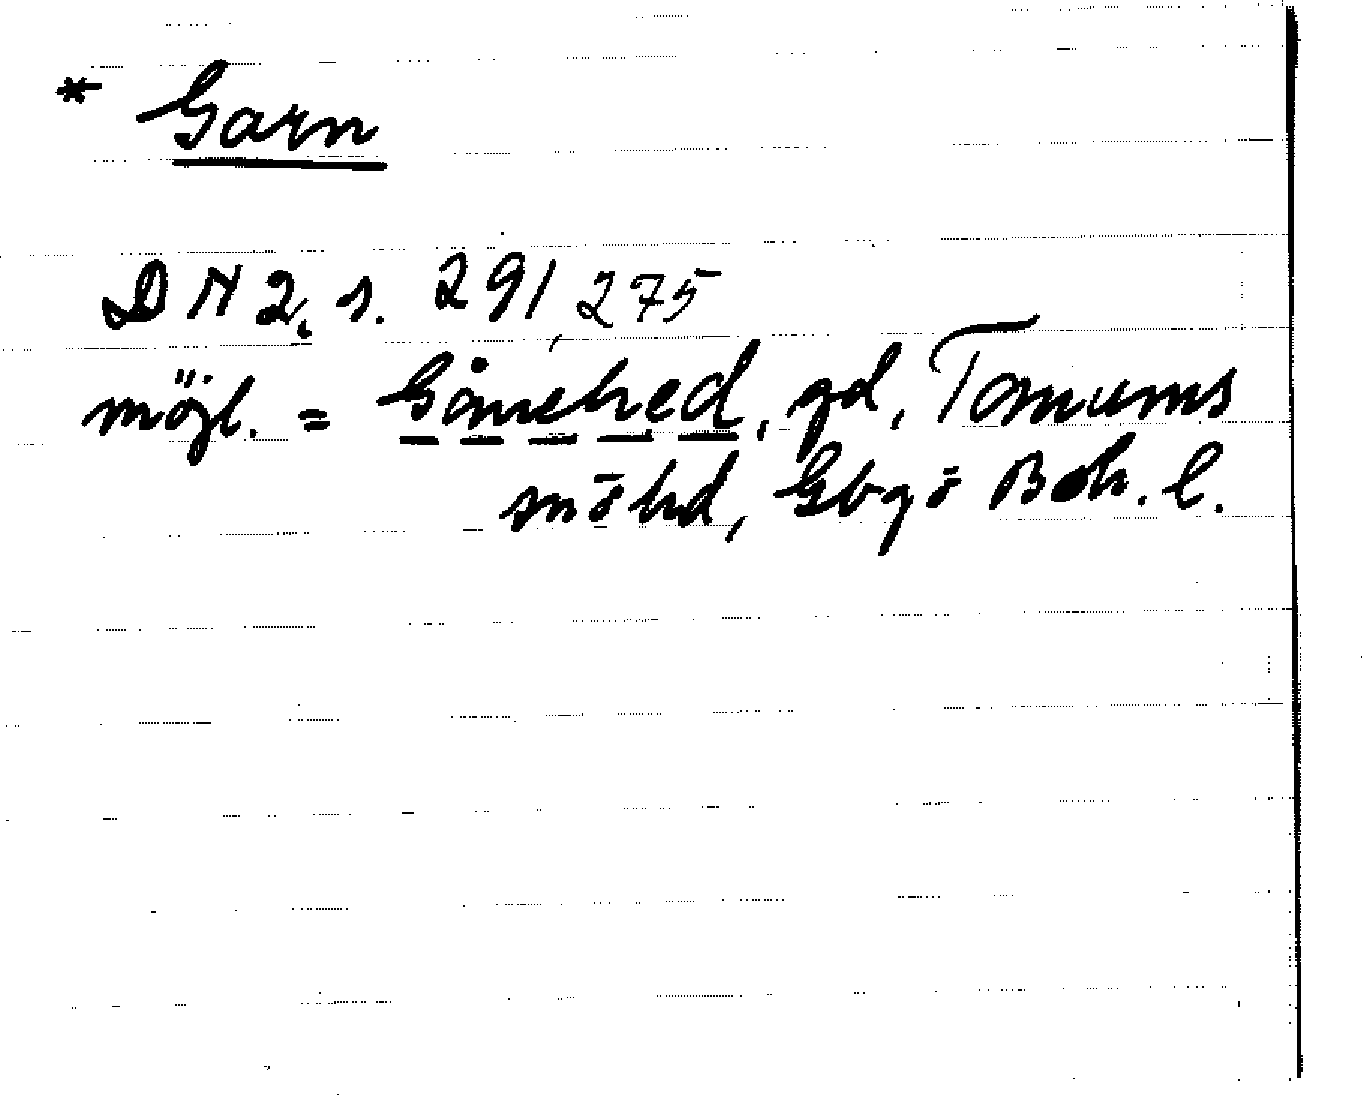 * Garn
DN 2, s. 291, 275
möjl. = Gånehed, gd, Tanums
snöhd, Gbgo Boh. l.